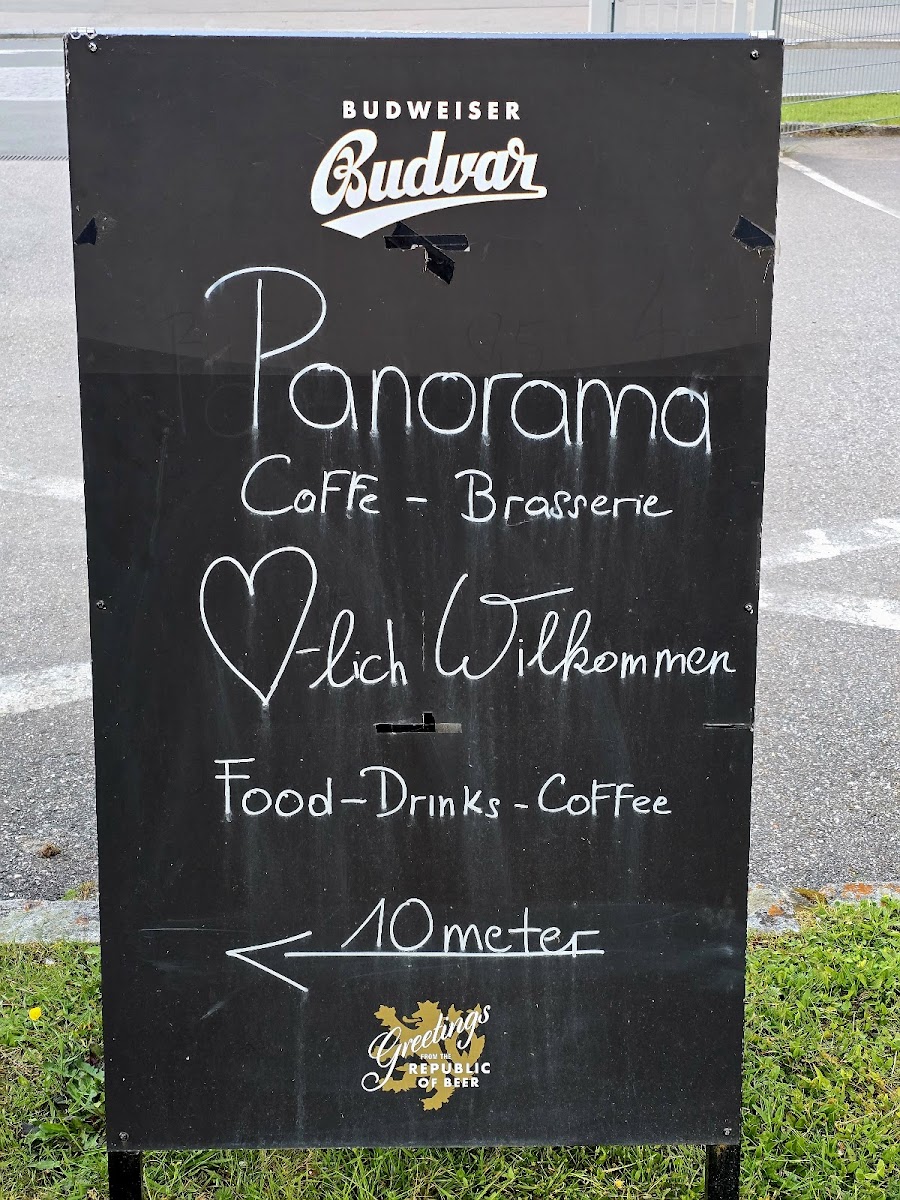 BUDWEISER
Budvar
Panorama
Caffe - Brasserie
♡-lich Wilkommen
Food-Drinks-Coffee
10meter
Greetings
FROM THE
REPUBLIC
OF BEER